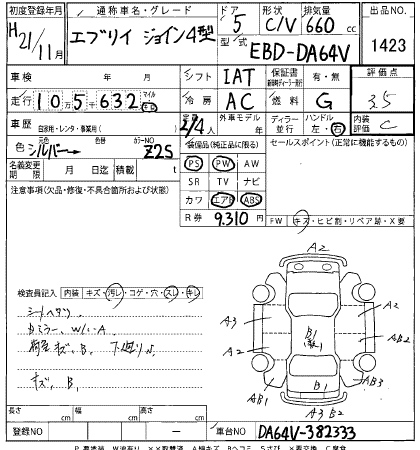 初度登録年月 通称車名・グレード ドア 形状 排気量 出品NO.
H21/11月 エブリイ ジョイン4型 5 C/V 660cc
型式 EBD-DA64V 1423
車検 年 月 シフト IAT 保証書 有・無 評価点
走行 105千632 マイル 冷房 AC 燃料 G 3.5
車歴 自家用・レンタ・事業用( ) 定員 2/4人 外車モデル 年 ディーラー 並行 ハンドル 左・右 内装評価 C
色 元色 シルバー→ 色替 カラーNO Z2S 装備品(純正品に限る) セールスポイント(正常に機能するもの)
名義変更期限 月 日迄 積載 t PS PW AW
注意事項(欠品・修復・不具合箇所および状態) SR TV ナビ
カワ エアB ABS
R券 9,310円 FW キズ・ヒビ割・リペア跡・X要
A2
検査員記入 内装 キズ・汚レ・コゲ・穴・スレ・キレ
シートヘタリ
A3 A1
A2 B1 A2
荷室キズ、B、下廻り
キズ、B、
AB1 B1 AB3
A3 B2
長さ cm 幅 cm 高さ cm
登録NO ー 車台NO DA64V-382333